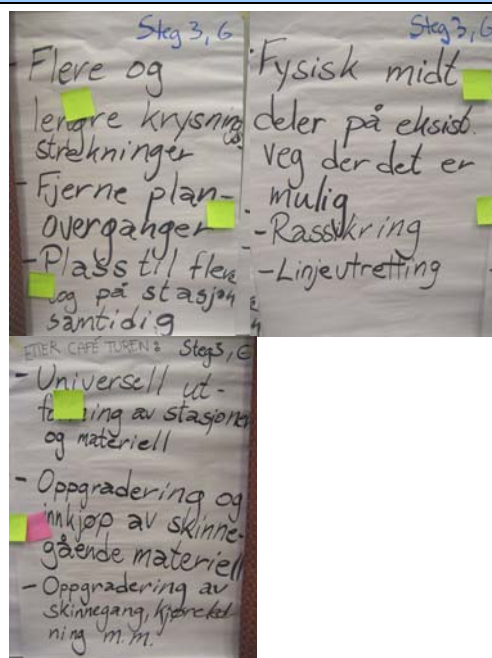 Steg 3, G
Flere og
lengre krysnings
strekninger
- Fjerne plan-
overganger
- Plass til flere
tog på stasjon
samtidig
Steg 3, G
Fysisk midt
deler på eksist.
veg der det er
mulig
- Rassikring
- Linjeutretting
ETTER CAFÉ TUREN: Steg 3, G
- Universell ut-
forming av stasjoner
og materiell
- Oppgradering og
innkjøp av skinne-
gående materiell
- Oppgradering av
skinnegang,
ning m.m.